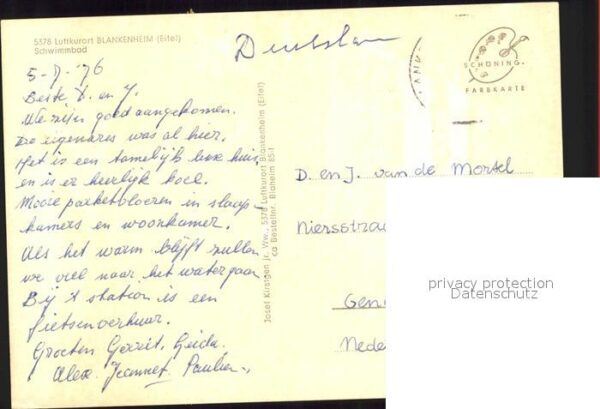 5378 Luftkurort BLANKENHEIM (Eifel)
Schwimmbad
5-7-'76
Beste D. en J.
We zijn goed aangekomen.
De eigenares was al hier.
Het is een tamelijk luxe huis
en is er heerlijk koel.
Mooie parketvloeren in slaap
kamers en woonkamer.
Als het warm blijft zullen
we veel naar het water gaan
Bij 't station is een
fietsenverhuur.
Groeten Gerrit, Geida.
Alex. Jeannet. Paulien.
Josef Kirstgen jr. Ww., 5378 Luftkurort Blankenheim (Eifel)
SCHÖNING
FARBKARTE
D. en J. van de Mortel
Niersstraa
Gen
Nede
privacy protection
Datenschutz